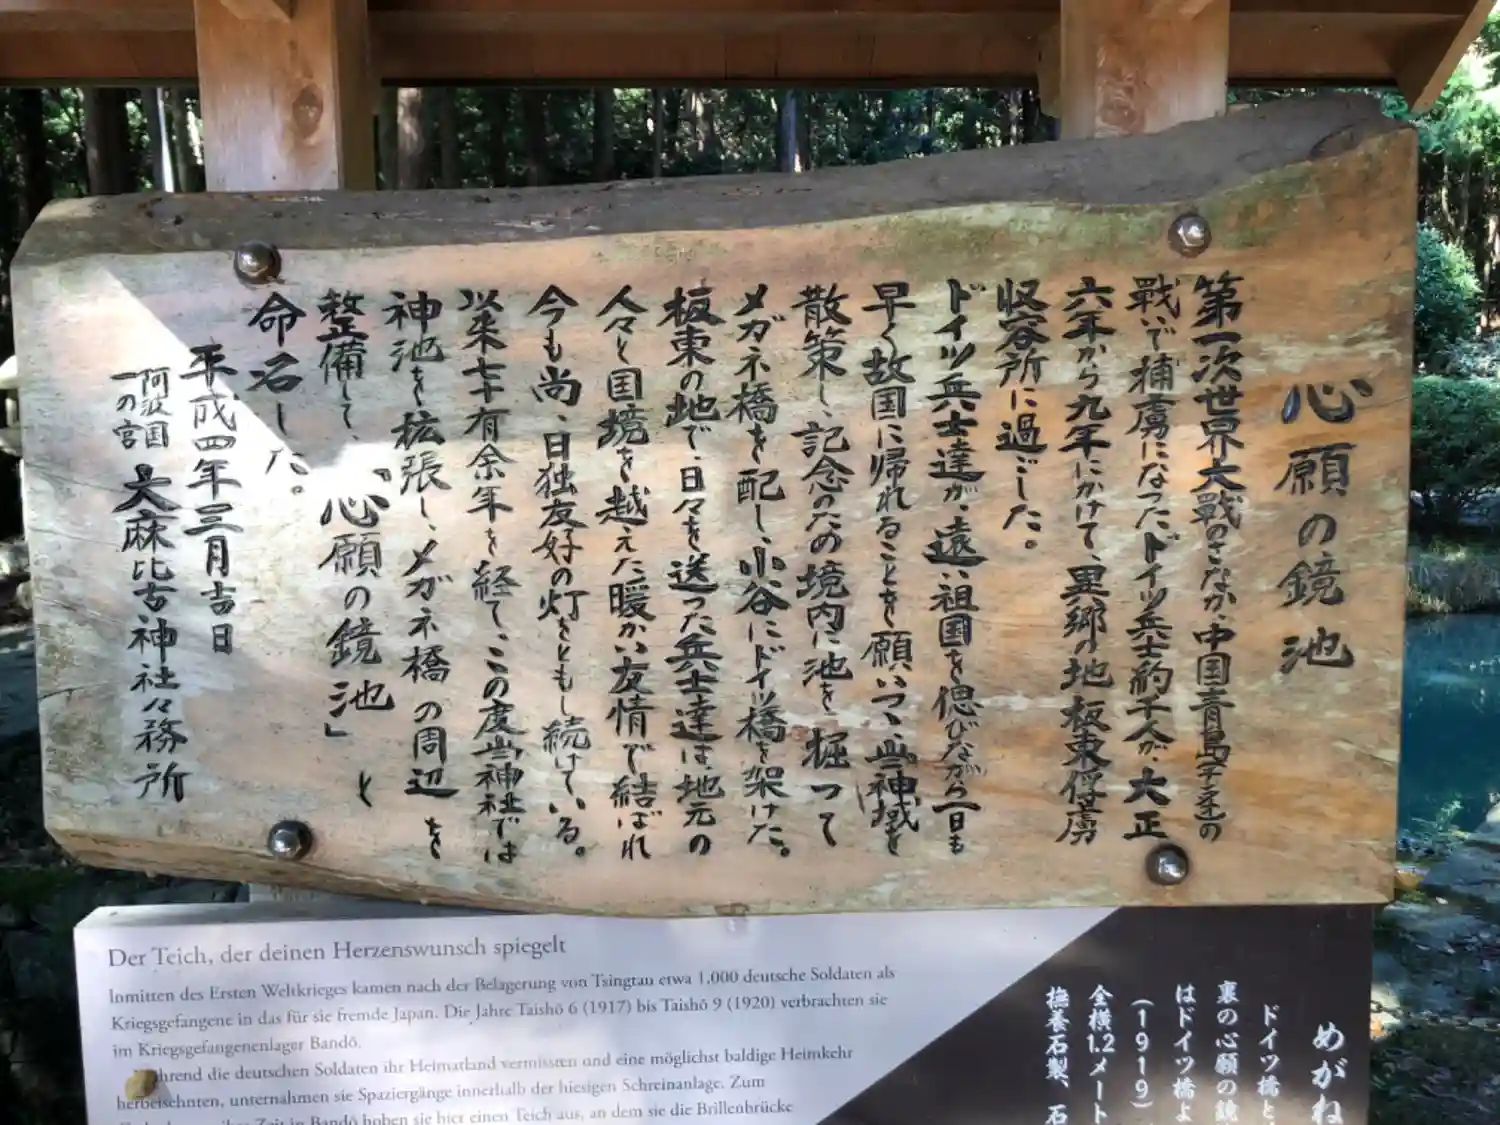 心願の鏡池
第一次世界大戰のさなか、中国青島(チンタオ)の
戰いで捕虜になったドイツ兵士約千人が、大正
六年から九年にかけて、異郷の地板東俘虜
収容所に過ごした。
ドイツ兵士達が、遠い祖国を偲びながら一日も
早く故国に帰れることを願いつつ、当神域を
散策し、記念のため境内に池を掘って
メガネ橋を配し、小谷にドイツ橋を架けた。
板東の地で、日々を送った兵士達は、地元の
人々と国境を越えた暖かい友情で結ばれ
今も尚、日独友好の灯をともし続けている。
以来七十有余年を経て、この度当神社では
神池を拡張し、メガネ橋の周辺を
整備して、「心願の鏡池」と
命名した。
平成四年三月吉日
阿波国
一の宮 大麻比古神社々務所
Der Teich, der deinen Herzenswunsch spiegelt
Inmitten des Ersten Weltkrieges kamen nach der Belagerung von Tsingtau etwa 1.000 deutsche Soldaten als
Kriegsgefangene in das für sie fremde Japan. Die Jahre Taishō 6 (1917) bis Taishō 9 (1920) verbrachten sie
im Kriegsgefangenenlager Bandō.
hrend die deutschen Soldaten ihr Heimatland vermissten und eine möglichst baldige Heimkehr
herbeisehnten, unternahmen sie Spaziergänge innerhalb der hiesigen Schreinanlage. Zum
Zeit in Bandō hoben sie hier einen Teich aus, an dem sie die Brillenbrücke
めがね
ドイツ橋と
裏の心願の鏡
はドイツ橋よ
(1919)
全横1.2メート
撫養石製、石